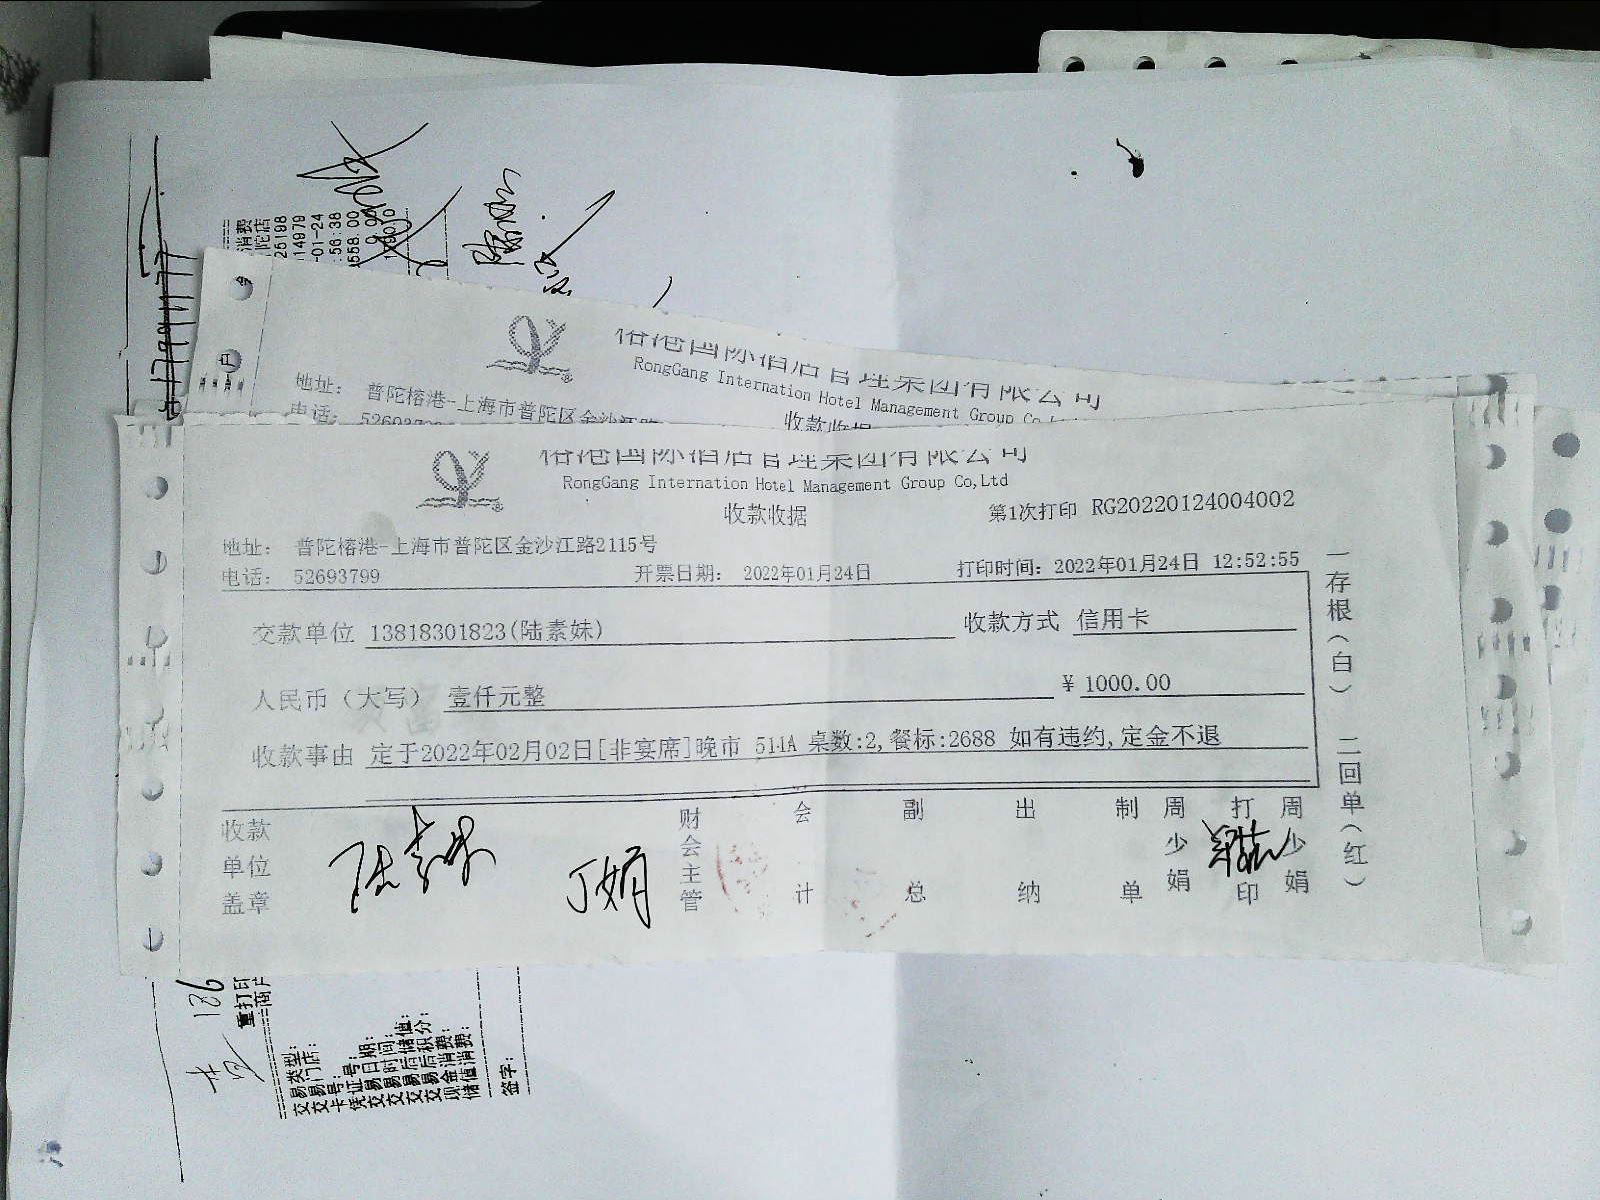 消费
陀店
25198
14979
-01-24
:56:38
558.00
0.00
RongGang Internation Hotel Management Group Co,Ltd
地址： 普陀榕港-上海市普陀区金沙江路
收款收据
电话：
榕港国际酒店管理集团有限公司
RongGang Internation Hotel Management Group Co,Ltd
收款收据
第1次打印 RG20220124004002
地址： 普陀榕港-上海市普陀区金沙江路2115号
电话： 52693799 开票日期： 2022年01月24日 打印时间：2022年01月24日 12:52:55
交款单位 13818301823(陆素妹) 收款方式 信用卡
人民币（大写） 壹仟元整 ¥ 1000.00
收款事由 定于2022年02月02日[非宴席]晚市 514A 桌数:2,餐标:2688 如有违约,定金不退
收款单位盖章
陆素妹
丁娟
财会主管
会计
副总
出纳
制单
周少娟
打印
周少娟
一存根（白） 二回单（红）
186
重打印
商户
交易类型：
交易门店：
卡号：
凭证号：
交易日期：
交易时间：
交易后储值：
交易后积分：
现金消费：
储值消费：
签字：